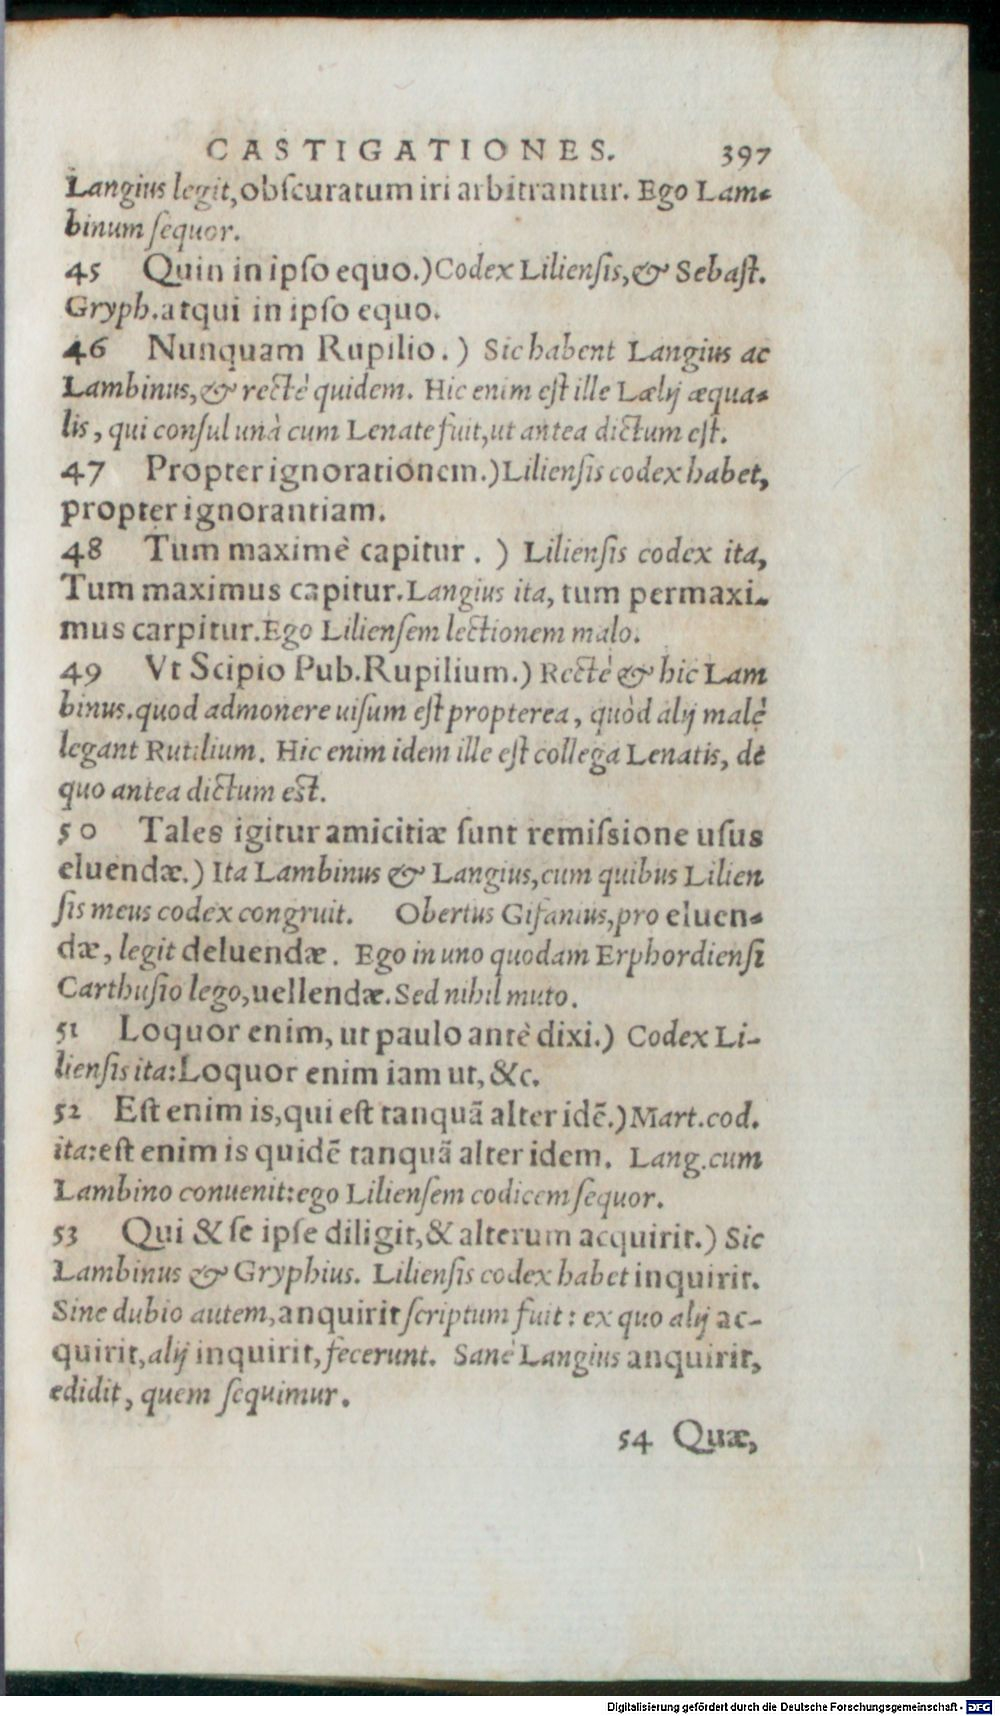 CASTIGATIONES. 397
Langius legit, obscuratum iri arbitrantur. Ego Lam-
binum sequor.
45 Quin in ipso equo.) Codex Liliensis, & Sebast.
Gryph. atqui in ipso equo.
46 Nunquam Rupilio.) Sic habent Langius ac
Lambinus, & rectè quidem. Hic enim est ille Lælij æqua-
lis, qui consul unà cum Lenate fuit, ut antea dictum est.
47 Propter ignorationem.) Liliensis codex habet,
propter ignorantiam.
48 Tum maximè capitur.) Liliensis codex ita,
Tum maximus capitur. Langius ita, tum permaxi-
mus carpitur. Ego Liliensem lectionem malo.
49 Vt Scipio Pub. Rupilium.) Rectè & hic Lam
binus. quod admonere uisum est propterea, quòd alij malè
legant Rutilium. Hic enim idem ille est collega Lenatis, de
quo antea dictum est.
50 Tales igitur amicitiæ sunt remissione usus
eluendæ.) Ita Lambinus & Langius, cum quibus Lilien
sis meus codex congruit. Obertus Gifanius, pro eluen-
dæ, legit deluendæ. Ego in uno quodam Erphordiensi
Carthusio lego, uellendæ. Sed nihil muto.
51 Loquor enim, ut paulo antè dixi.) Codex Li-
liensis ita: Loquor enim iam ut, &c.
52 Est enim is, qui est tanquã alter idẽ.) Mart. cod.
ita: est enim is quidẽ tanquã alter idem. Lang. cum
Lambino conuenit: ego Liliensem codicem sequor.
53 Qui & se ipse diligit, & alterum acquirit.) Sic
Lambinus & Gryphius. Liliensis codex habet inquirit.
Sine dubio autem, anquirit scriptum fuit: ex quo alij ac-
quirit, alij inquirit, fecerunt. Sanè Langius anquirit,
edidit, quem sequimur.
54 Quæ,
Digitalisierung gefördert durch die Deutsche Forschungsgemeinschaft - DFG